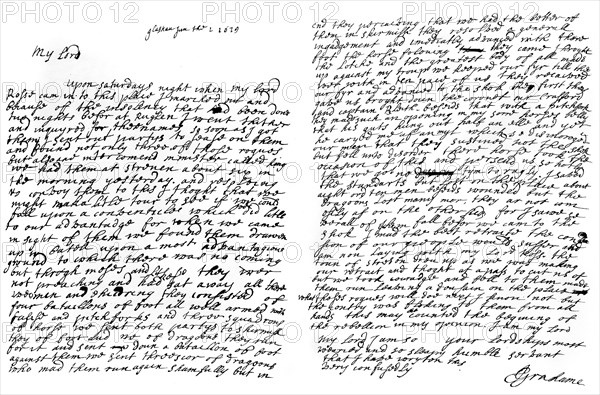 glaskow Jun the 1 1679
My Lord
Upon saturday night when my lord
Rosse cam in to this place I marched out and
becaus of the insolency that had been don
tue nights befor at Ruglen I went thither
and inquyred for the names, so soon as I got
them I sent out partys to sease on them
and found not only three of those rogues
but also ane intercomend minister called King
we had them at streven about six in
the morning yesterday and resolving
to convey them to this I thoght that we
might make a litle tour to see if we could
fall upon a conventicle which we did litle
to our advantage for when we came
in sight of them we found them drawen
up in batell upon a most advantagious
ground to which there was no coming
but throgh mosses and lakes they wer
not preaching and had gat away all there
women and shildring they consisted of
four bataillons of foot all well armed with
fusils and pitch forks and three squadrons
of horse we sent both partys to skirmish
they of foot and we of dragoons they run
for it and sent down a bataillon of foot
against them we sent threescor of dragoons
who mad them run again shamfully but in
end they percaiving that we had the better of
them in skirmish they resolved a generall
engadgment and imediatly advanced with there
foot the horse folowing they came throght
the lotche and the greatest body of all made
up against my troup we keeped our fyr till they
wer within ten pace of us they recaived
our fyr and advanced to the shok the first they
gave us broght down the coronet
and besids that with a pitchfork
they mad such an opening in my horses belly
that his guts hung out half an elle and yet
he caryed me af an myl which so discoroged
our men that they sustined not the shok
but fell into disorder there horse took the
occasion of this and persued us so hotly
that we got no tym to rayly I saved
the standarts but lost on the place about
aight or ten men besids wounded but the
dragoons lost many mor they ar not com
esily af on the other side for I sawe se-
verall of them fall befor we cam to the
shok I mad the best retraite the confu-
sion of our people would suffer and I
am now laying with my lord Rosse the
toun of streven drew up as we was making
our retrait and thoght of a pass to cut us of
but we took courage and fell to them made
them run leaving a dousain on the place
what these rogues will dou yet I know not but
the contry was floking to them from all
hands this may be counted the begining of
the rebellion in my opinion I am my lord
My lord I am so your lordships most
wearied and so sleapy humble servant
that I have wryton this
very confusedly J Grahame
PHOTO12